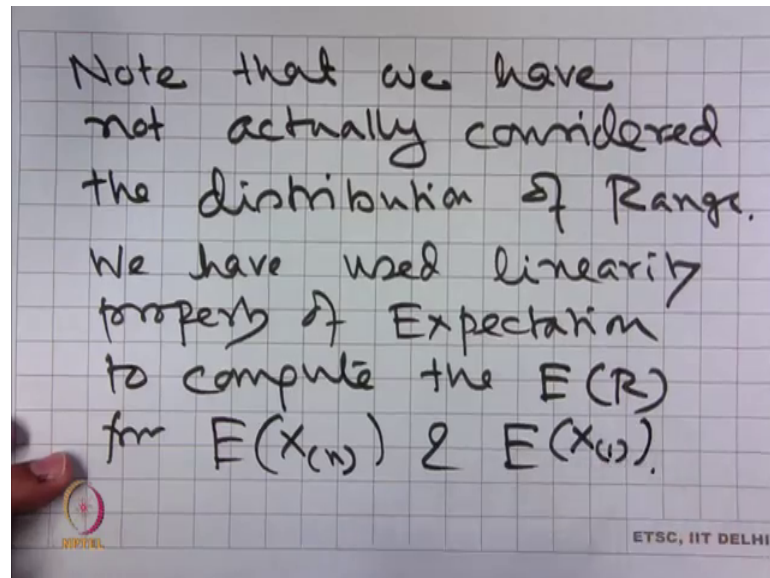 Note that we have
not actually considered
the distribution of Range.
We have used linearity
property of Expectation
to compute the E(R)
for E(X(n)) & E(X(1)).
NPTEL
ETSC, IIT DELHI